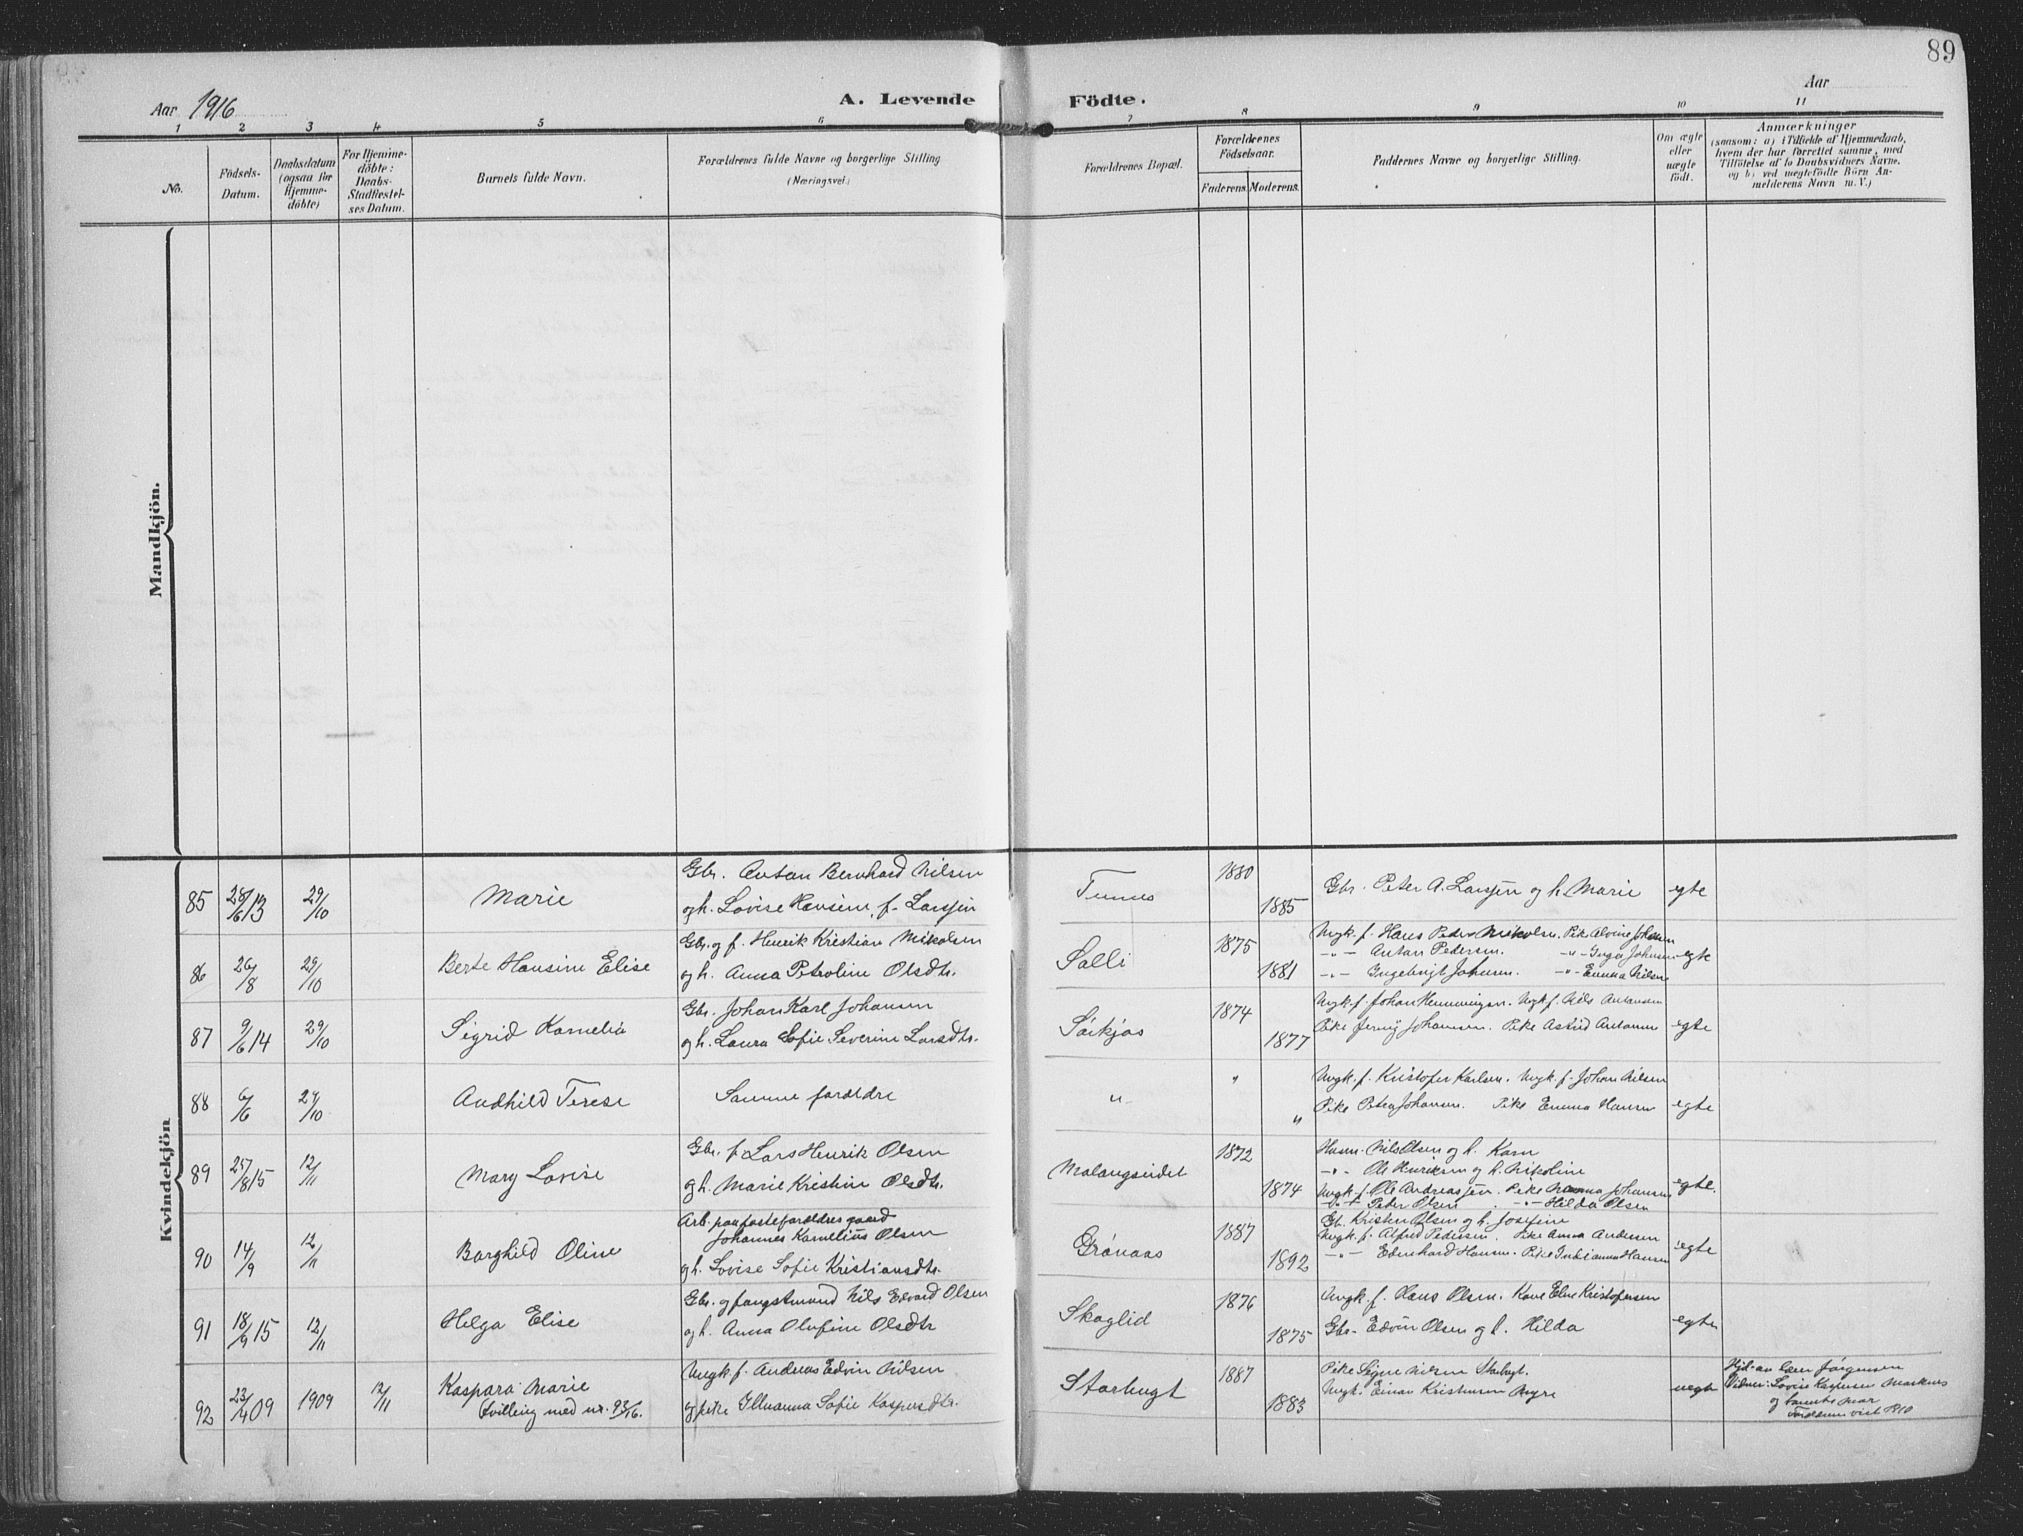 89
Aar 1916
A. Levende Födte.
Aar
1 2 3 4 5 6 7 8 9 10 11
No.
Födsels-Datum.
Daabsdatum (ogsaa for Hjemme-döbte)
For Hjemme-döbte: Daabs-Stadfæstel-ses Datum.
Barnets fulde Navn.
Forældrenes fulde Navne og borgerlige Stilling
(Næringsvei.)
Forældrenes Bopæl.
Forældrenes Födselsaar.
Faderens. Moderens.
Faddernes Navne og borgerlige Stilling.
Om ægte eller uægte födt.
Anmærkninger
(saasom: a) i Tilfælde af Hjemmedaab,
hvem der har forrettet samme, med
Tilföielse af to Daabsvidners Navne.
og b) ved uægtefödte Börn An-
melderens Navn m. V.)
Mandkjön.
Kvindekjön
85 28/6 13 29/10 Marie
Gbr. Anton Bernhard Nilsen
og h. Lovise Hansine, f. Larssen
Tennes 1880 1885
Gbr. Peter A. Larssen og h. Marie
egte
86 26/8 29/10 Berte Hansine Elise
Gbr. og f. Henrik Kristian Mikalsen
og h. Anna Petroline Olsdtr.
Salli 1875 1881
Ungk. f. Hans Peder Nikolsen. Pike Alvine Johansen
-"- Anton Pedersen. -"- Inga Johansen
-"- Ingebrigt Johansen. -"- Emma Nilsen
egte
87 9/6 14 29/10 Sigrid Kornelia
Gbr. Johan Karl Johansen
og h. Laura Sofie Severine Larsdtr.
Sörkjos 1874 1877
Ungk. f. Johan Hemmingsen. Ungk. f. Nils Antonsen
Pike Jenny Johansen. Pike Astrid Antonsen
egte
88 6/6 29/10 Andhild Terese
Samme forældre
" " "
Ungk. f. Kristofer Karlsen. Ungk. f. Johan Nilsen
Pike Petra Johansen. Pike Emma Hansen
egte
89 25/8 15 12/11 Mary Lovise
Gbr. f. Lars Henrik Olsen
og h. Marie Kristine Olsdtr.
Malangseidet 1872 1874
Husm. Nils Olsen og h. Karen
-"- Ole Henriksen og h. Nikoline
Ungk. f. Ole Andreassen. Pike Johansen
-"- Peter Olsen -"- Hilda Olsen
egte.
90 14/9 12/11 Borghild Oline
Arb. paa fosterforældres gaard
Johannes Kornelius Olsen
og h. Lovise Sofie Kristiansdtr.
Grönaas 1887 1892
Gb. Kristen Olsen og h. Josefine
Ungk. f. Alfred Pedersen. Pike Anna Andersen
-"- Edvard Hansen. Pike Hansen
egte
91 18/9 15 12/11 Helga Elise
Gbr. og fangstmand Nils Edvard Olsen
og h. Anna Olufine Olsdtr
Skoglid 1876 1875
Ungk. f. Hans Olsen. Kone Eline Kristofersen
Gbr. Edvin Olsen og h. Hilda
egte
92 23/4 09 1909 12/11 Kaspara Marie
tvilling med nr. 93/16.
Ungk. f. Andreas Edvin Nilsen
og pike Illuanna Sofie Kaspersdtr.
Storbugt 1887 1883
Pike Signe Nilsen Storbugt.
Ungk. Einar Kristensen Myre
uegte
Hjd. av Jörgensen
Vidner: Lovise Kaspersen Markenes
og
Forældrene viet 1910